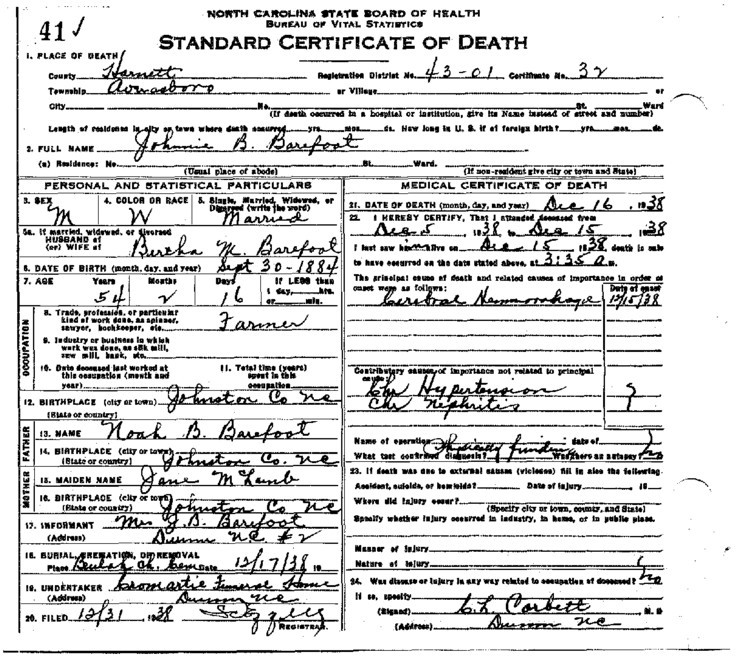 NORTH CAROLINA STATE BOARD OF HEALTH
BUREAU OF VITAL STATISTICS
41
STANDARD CERTIFICATE OF DEATH
1. PLACE OF DEATH
County Harnett Registration District No. 43-01 Certificate No. 32
Township Averasboro or Village or
City No. St. Ward
(If death occurred in a hospital or institution, give its Name instead of street and number)
Length of residence in city or town where death occurred yrs. mos. ds. How long in U. S. if of foreign birth? yrs. mos. ds.
2. FULL NAME Johnnie B. Barefoot
(a) Residence: No. St. Ward.
(Usual place of abode) (If non-resident give city or town and State)
PERSONAL AND STATISTICAL PARTICULARS
3. SEX 4. COLOR OR RACE 5. Single, Married, Widowed, or
Divorced (write the word)
M W Married
5a. If married, widowed, or divorced
HUSBAND of
(or) WIFE of Bertha M. Barefoot
6. DATE OF BIRTH (month, day, and year) Sept 30-1884
7. AGE Years Months Days If LESS than
1 day, hrs.
54 2 16 or min.
OCCUPATION
8. Trade, profession, or particular
kind of work done, as spinner,
sawyer, bookkeeper, etc. Farmer
9. Industry or business in which
work was done, as silk mill,
saw mill, bank, etc.
10. Date deceased last worked at
this occupation (month and
year)
11. Total time (years)
spent in this
occupation
12. BIRTHPLACE (city or town) Johnston Co NC
(State or country)
FATHER
13. NAME Noah B. Barefoot
14. BIRTHPLACE (city or town)
(State or country) Johnston Co. NC
MOTHER
15. MAIDEN NAME Jane McLamb
16. BIRTHPLACE (city or town)
(State or country) Johnston Co NC
17. INFORMANT Mrs J.B. Barefoot
(Address) Dunn NC #2
18. BURIAL, CREMATION, OR REMOVAL
Place Beulah Ch. Cem Date 12/17/38 19
19. UNDERTAKER Cromartie Funeral Home
(Address) Dunn NC
20. FILED 12/31, 1938
REGISTRAR.
MEDICAL CERTIFICATE OF DEATH
21. DATE OF DEATH (month, day, and year) Dec 16, 1938
22. I HEREBY CERTIFY, That I attended deceased from
Dec 5, 1938 to Dec 15, 1938
I last saw him alive on Dec 15, 1938, death is said
to have occurred on the date stated above, at 3:35 a.m.
The principal cause of death and related causes of importance in order of
onset were as follows: Date of onset
Cerebral Hemmorrhage 12/15/38
Contributory causes of importance not related to principal
cause:
Chr Hypertension ?
Chr Nephritis
Name of operation date of
What test confirmed diagnosis? Physically findings Was there an autopsy? no
23. If death was due to external causes (violence) fill in also the following:
Accident, suicide, or homicide? Date of injury 19
Where did injury occur?
(Specify city or town, county, and State)
Specify whether injury occurred in industry, in home, or in public place.
Manner of injury
Nature of injury
24. Was disease or injury in any way related to occupation of deceased? no
If so, specify
(Signed) C.L. Corbett M. D
(Address) Dunn NC